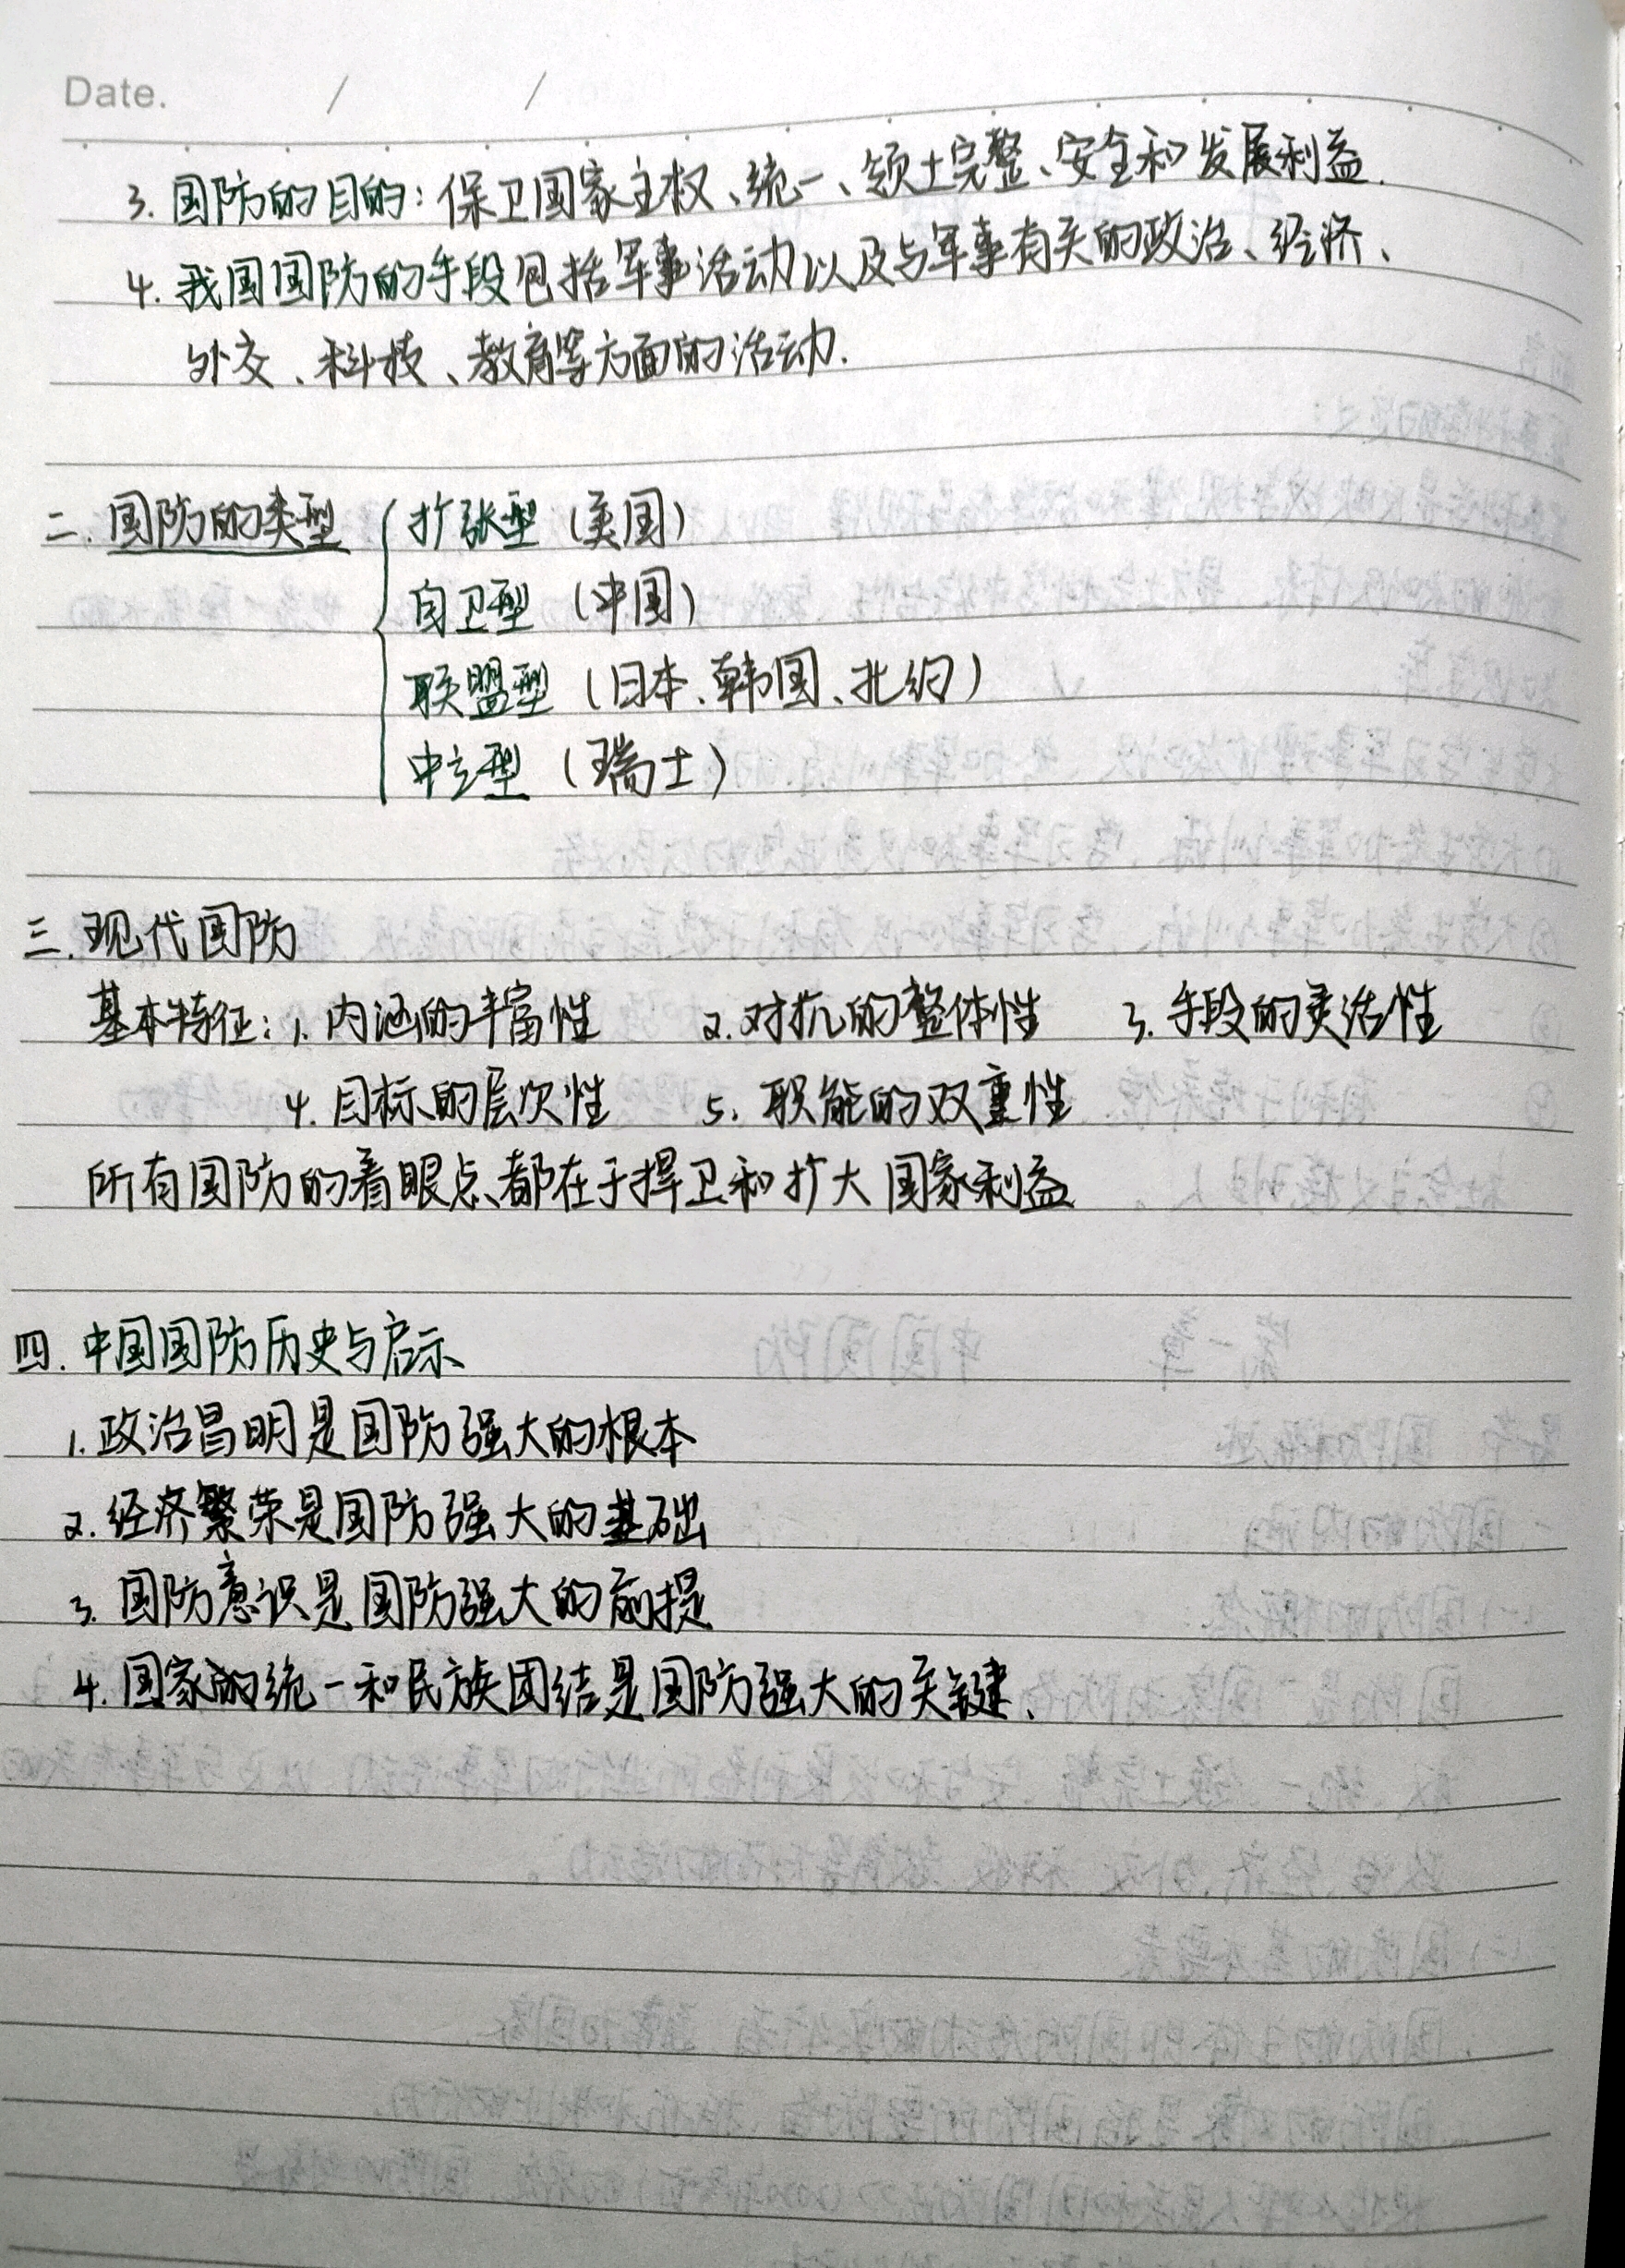 Date. / /
3. 国防的目的：保卫国家主权、统一、领土完整、安全和发展利益.
4. 我国国防的手段包括军事活动以及与军事有关的政治、经济、
外交、科技、教育等方面的活动.
二. 国防的类型 { 扩张型（美国）
自卫型（中国）
联盟型（日本、韩国、北约）
中立型（瑞士）
三. 现代国防
基本特征：1. 内涵的丰富性 2. 对抗的整体性 3. 手段的灵活性
4. 目标的层次性 5. 职能的双重性
所有国防的着眼点都在于捍卫和扩大国家利益
四. 中国国防历史与启示
1. 政治昌明是国防强大的根本
2. 经济繁荣是国防强大的基础
3. 国防意识是国防强大的前提
4. 国家的统一和民族团结是国防强大的关键、